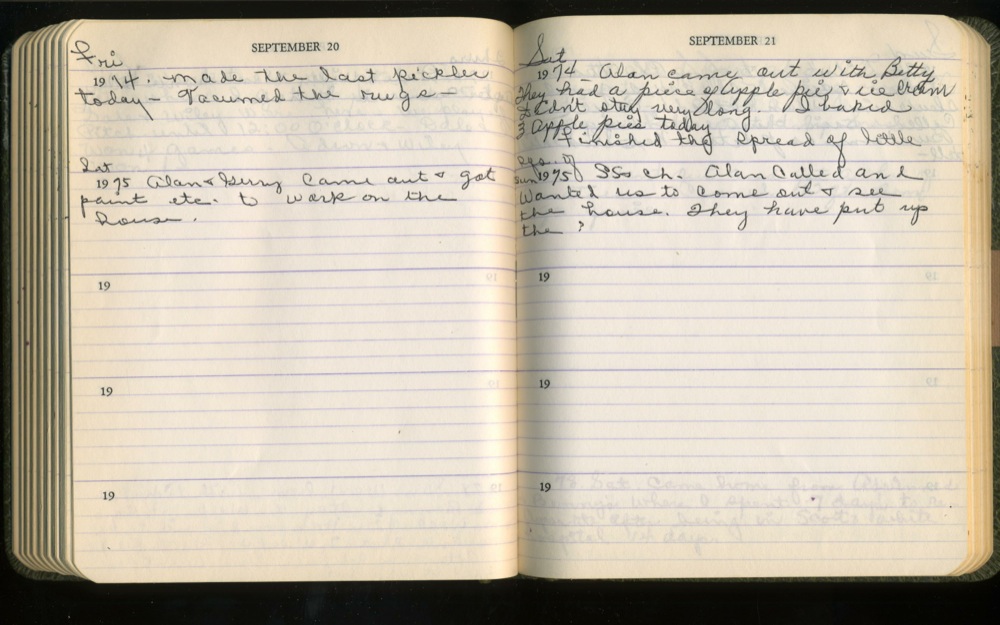 SEPTEMBER 20
Fri
1974. Made the last pickles
today - Vacumed the rugs -
Sat
1975 Alan & Gerry came out & got
paint etc. to work on the
house.
19
19
19
SEPTEMBER 21
Sat
1974 - Alan came out with Betty
They had a piece of apple pie & ice cream
& Cdn't stay very long. I baked
3 Apple pies today
Finished the spread of little
sqs.
Sun 1975 SS & ch. Alan Called and
Wanted us to come out & see
the house. They have put up
the ?
19
19
19 78 Sat. Came home from
where I spent 7 days
being in Scott & White
14 days.